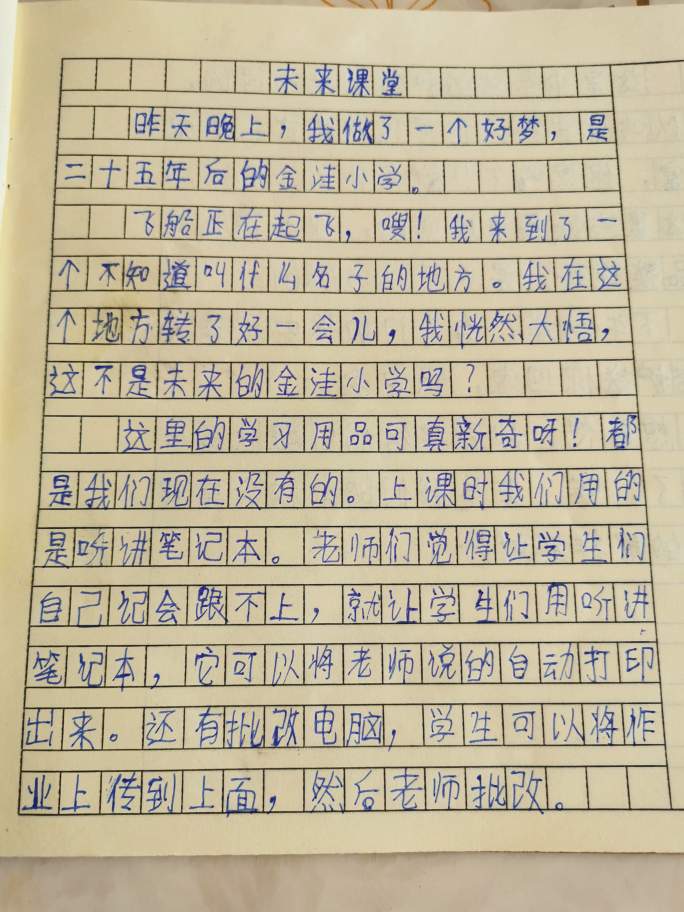 未来课堂
昨天晚上，我做了一个好梦，是
二十五年后的金洼小学。
飞船正在起飞，嗖！我来到了一
个不知道叫什么名子的地方。我在这
个地方转了好一会儿，我恍然大悟，
这不是未来的金洼小学吗？
这里的学习用品可真新奇呀！都
是我们现在没有的。上课时我们用的
是听讲笔记本。老师们觉得让学生们
自己记会跟不上，就让学生们用听讲
笔记本，它可以将老师说的自动打印
出来。还有批改电脑，学生可以将作
业上传到上面，然后老师批改。